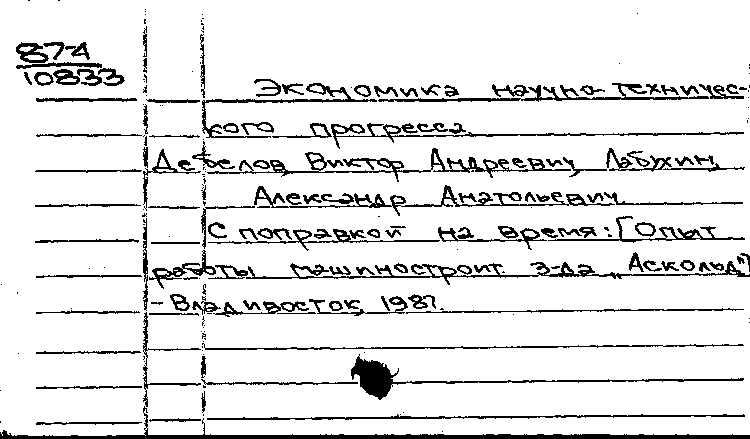 874
10833
Экономика научно-техничес-
кого прогресса.
Дебелов, Виктор Андреевич, Лабухин,
Александр Анатольевич.
С поправкой на время: [Опыт
работы машиностроит. з-да „Аскольд"]
- Владивосток, 1987.